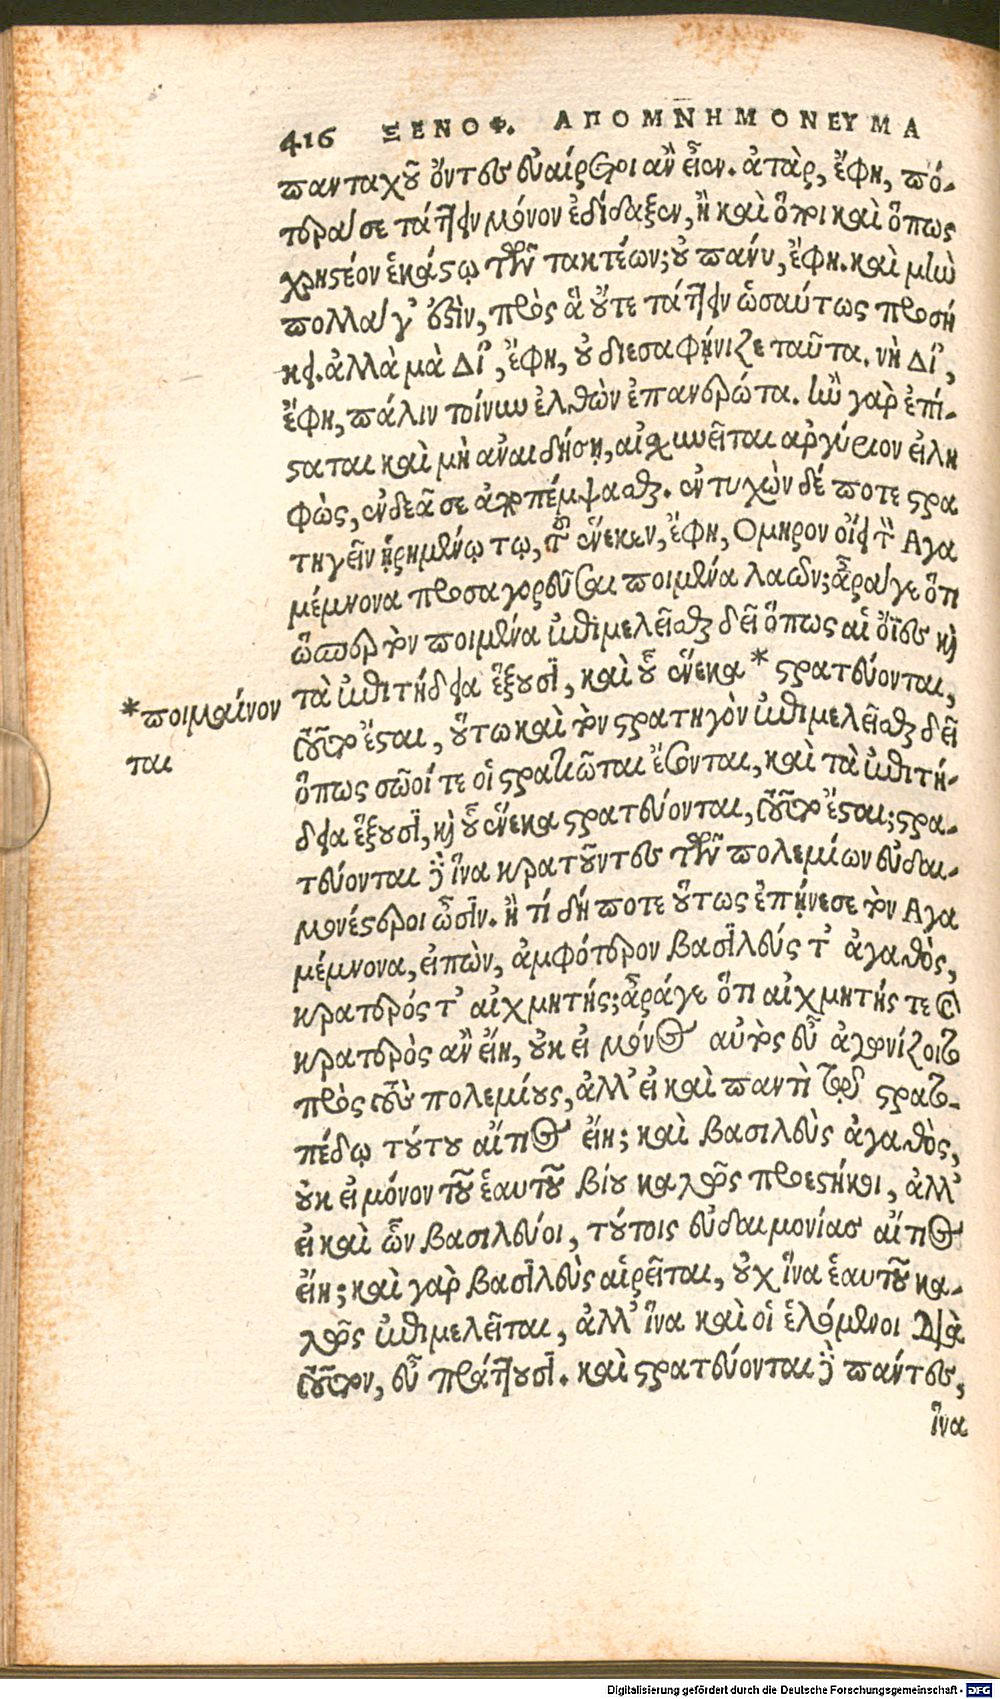 416 ΞΕΝΟΦ. ΑΠΟΜΝΗΜΟΝΕΥΜΑ
πανταχοῦ ὄντες εὐαίρετοι ἂν εἶεν. ἀτὰρ, ἔφη, πό-
τερά σε τάττειν μόνον ἐδίδαξεν, ἢ καὶ ὅποι καὶ ὅπως
χρηστέον ἑκάστῳ τῶν τακτέων; οὐ πάνυ, ἔφη. καὶ μὴν
πολλά γ' ἐστὶν, πρὸς ἃ οὔτε τάττειν ὡσαύτως προσή
κει. ἀλλὰ μὰ Δί', ἔφη, οὐ διεσαφήνιζε ταῦτα. νὴ Δί',
ἔφη, πάλιν τοίνυν ἐλθὼν ἐπανερώτα. ἢν γὰρ ἐπί-
σταται καὶ μὴ ἀναιδὴς ᾖ, αἰσχυνεῖται ἀργύριον εἰλη
φὼς, ἐνδεᾶ σε ἀποπέμψασθαι. ἐντυχὼν δέ ποτε στρα
τηγεῖν ᾑρημένῳ τῳ, τοῦ ἕνεκεν, ἔφη, Ομηρον οἴει τὸν Αγα
μέμνονα προσαγορεῦσαι ποιμένα λαῶν; ἆρά γε ὅτι
ὥσπερ τὸν ποιμένα ἐπιμελεῖσθαι δεῖ ὅπως αἱ ὄϊες καὶ
τὰ ἐπιτήδεια ἕξουσι, καὶ οὗ ἕνεκα * στρατεύονται,
*ποιμαίνον
ται
τοῦτο ἔσται, οὕτω καὶ τὸν στρατηγὸν ἐπιμελεῖσθαι δεῖ
ὅπως σῶοί τε οἱ στρατιῶται ἔσονται, καὶ τὰ ἐπιτή-
δεια ἕξουσι, καὶ οὗ ἕνεκα στρατεύονται, τοῦτο ἔσται; στρα-
τεύονται δὲ ἵνα κρατοῦντες τῶν πολεμίων εὐδαι-
μονέστεροι ὦσιν. ἢ τί δή ποτε οὕτως ἐπῄνεσε τὸν Αγα
μέμνονα, εἰπὼν, ἀμφότερον βασιλεύς τ' ἀγαθὸς,
κρατερός τ' αἰχμητής; ἆρά γε ὅτι αἰχμητής τε
κρατερὸς ἂν εἴη, οὐκ εἰ μόνος αὐτὸς εὖ ἀγωνίζοιτο
πρὸς τοὺς πολεμίους, ἀλλ' εἰ καὶ παντὶ τῷ στρατο-
πέδῳ τούτου αἴτιος εἴη; καὶ βασιλεὺς ἀγαθὸς,
οὐκ εἰ μόνον τοῦ ἑαυτοῦ βίου καλῶς προεστήκοι, ἀλλ'
εἰ καὶ ὧν βασιλεύοι, τούτοις εὐδαιμονίας αἴτιος
εἴη; καὶ γὰρ βασιλεὺς αἱρεῖται, οὐχ ἵνα ἑαυτοῦ κα-
λῶς ἐπιμελεῖται, ἀλλ' ἵνα καὶ οἱ ἑλόμενοι διὰ
τοῦτον, εὖ πράττουσι. καὶ στρατεύονται δὲ πάντες,
ἵνα
Digitalisierung gefördert durch die Deutsche Forschungsgemeinschaft - DFG